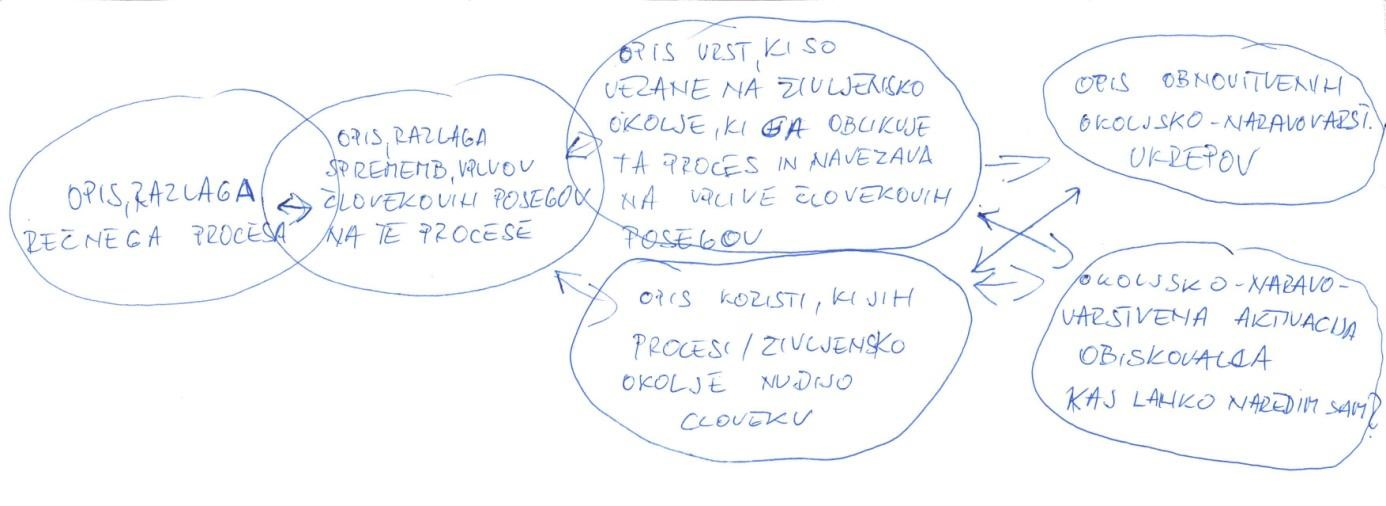 OPIS, RAZLAGA
REČNEGA PROCESA
OPIS, RAZLAGA
SPREMEMB, VPLIVOV
ČLOVEKOVIH POSEGOV
NA TE PROCESE
OPIS VRST, KI SO
VEZANE NA ŽIVLJENSKO
OKOLJE, KI GA OBLIKUJE
TA PROCES IN NAVEZAVA
NA VPLIVE ČLOVEKOVIH
POSEGOV
OPIS KORISTI, KI JIH
PROCESI / ŽIVLJENSKO
OKOLJE NUDIJO
ČLOVEKU
OPIS OBNOVITVENIH
OKOLJSKO-NARAVOVARST.
UKREPOV
OKOLJSKO-NARAVO-
VARSTVENA AKTIVACIJA
OBISKOVALCA
KAJ LAHKO NAREDIM SAM?